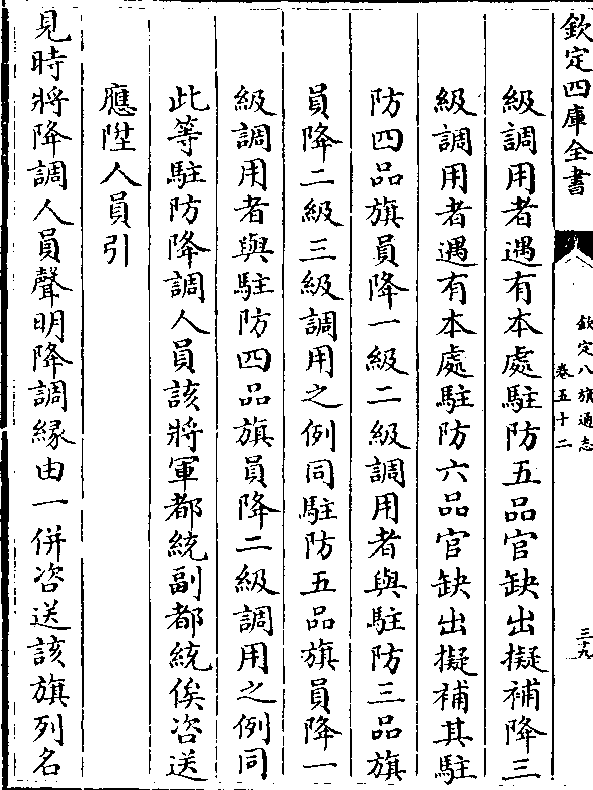 欽定四庫全書
欽定八旗通志
卷五十二
三十九
級調用者遇有本處駐防五品官缺出擬補降三
級調用者遇有本處駐防六品官缺出擬補其駐
防四品旗員降一級二級調用者與駐防三品旗
員降二級三級調用之例同駐防五品旗員降一
級調用者與駐防四品旗員降二級調用之例同
此等駐防降調人員該將軍都統副都統俟咨送
應陞人員引
見時將降調人員聲明降調緣由一併咨送該旗列名